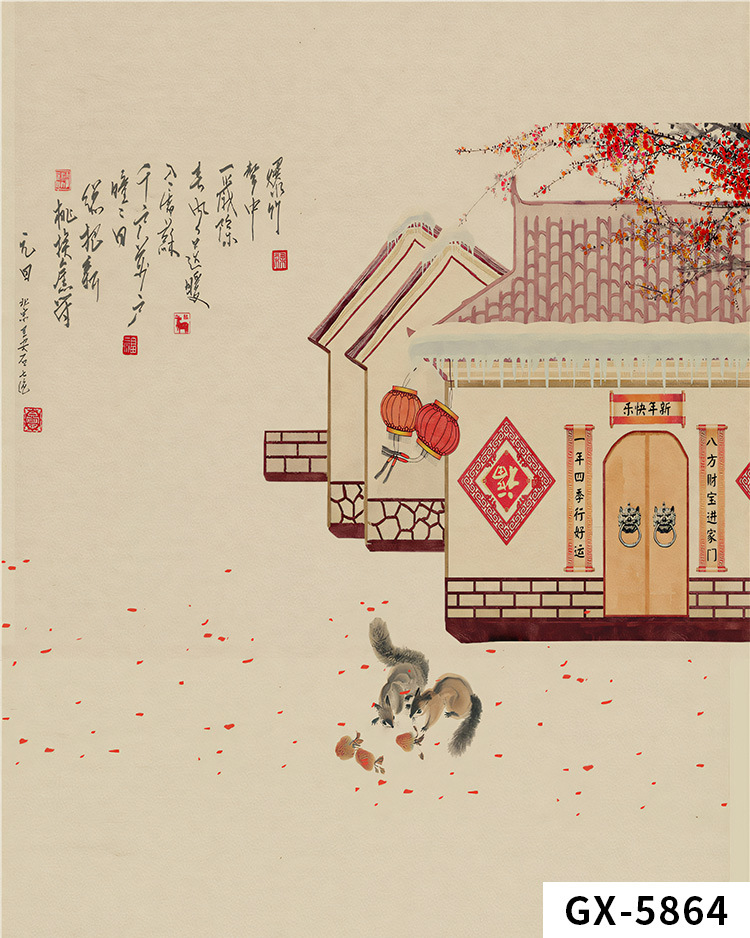 爆竹
聲中
一歲除
春风送暖
入屠蘇
千门萬户
曈曈日
總把新
桃換舊符
元日 北宋 王安石
福
新年快乐
八方财宝进家门
一年四季行好运
福
GX-5864